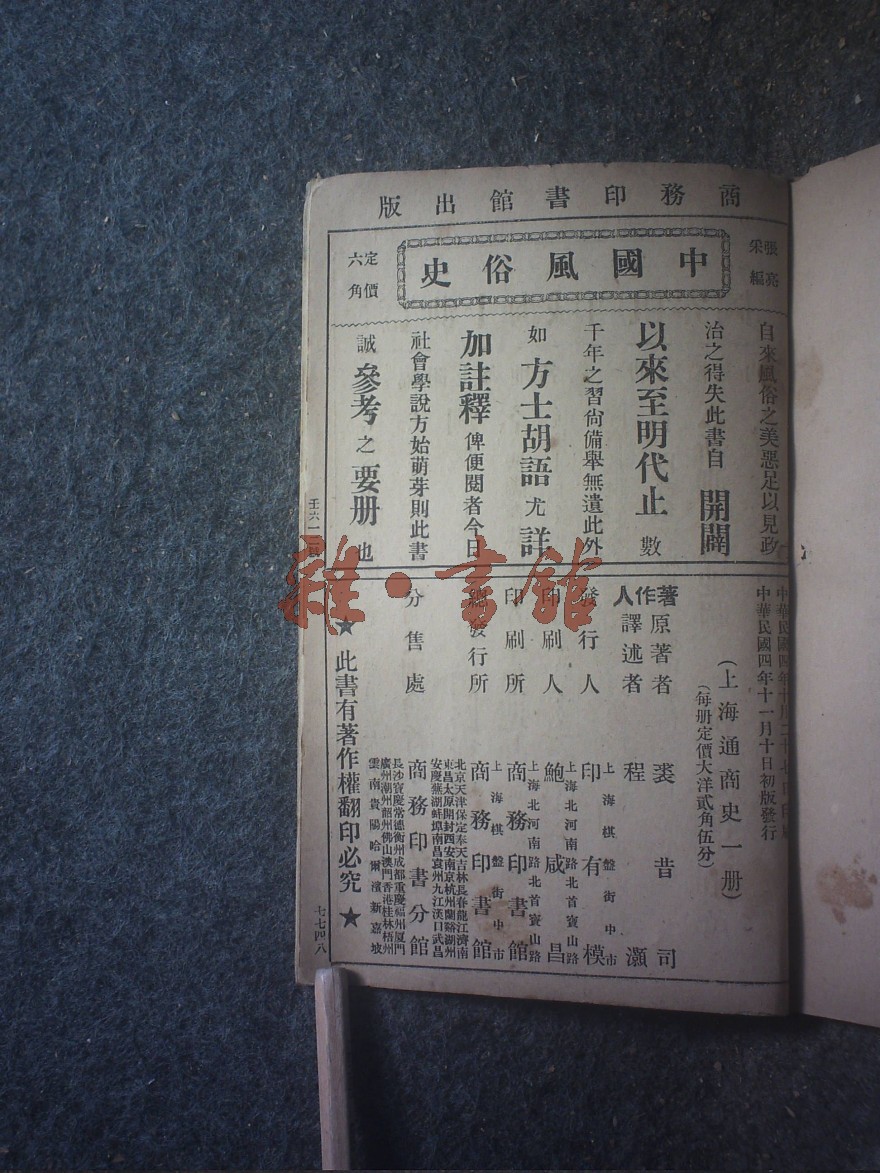 商務印書館出版
張亮采編
中國風俗史
定價六角
自來風俗之美惡足以見政
治之得失此書自開闢
以來至明代止數
千年之習尙備舉無遺此外
如方士胡語尤詳
加註釋俾便閱者今日
社會學說方始萌芽則此書
誠參考之要册也
中華民國四年十月二十七日印刷
中華民國四年十一月十日初版發行
(上海通商史一册)
(每册定價大洋貳角伍分)
著作人
原著者 裘昔司
譯述者 程灝
發行人 印有模
上海棋盤街中市
印刷人 鮑咸昌
上海北河南路北首寶山路
印刷所 商務印書館
上海北河南路北首寶山路
總發行所 商務印書館
上海棋盤街中市
分售處 商務印書分館
北京天津保定奉天吉林長春龍江濟南
東昌太原開封西安南京杭州蘭谿湖州
安慶蕪湖蚌埠南昌袁州九江漢口武昌
長沙寶慶常德衡州成都重慶福州厦門
廣州潮州韶州佛山澳門香港桂林梧州
雲南貴陽哈爾濱新嘉坡
★此書有著作權翻印必究★
七七四八
雜·書館